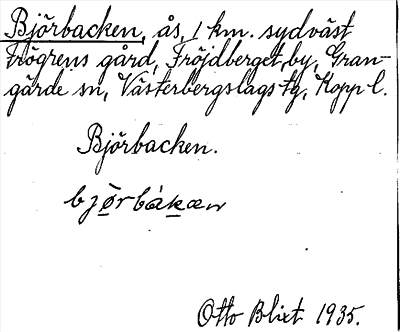 Björbacken, ås, 1 km. sydväst
Frögrens gård, Fröjdberget, by, Gran-
gärde sn, Västerbergslags tg, Kopp l.
Björbacken.
björbákæn
Otto Blixt 1935.